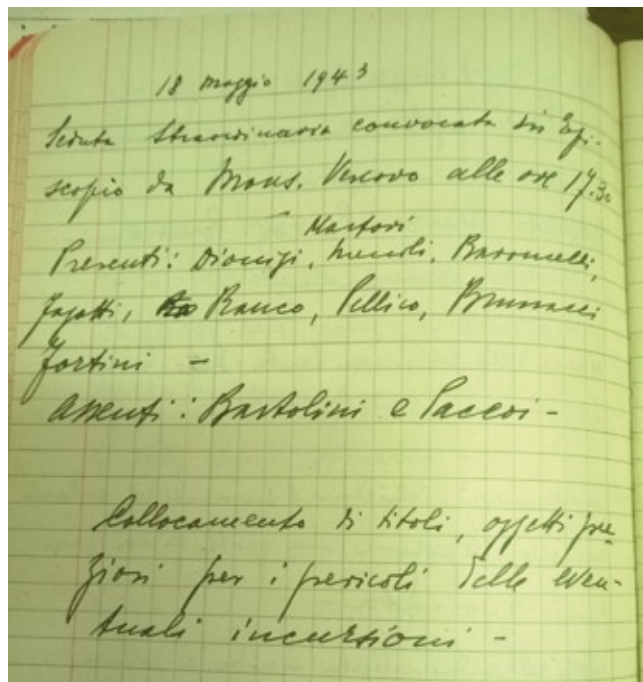 18 Maggio 1943
Seduta Straordinaria convocata in Epi-
scopio da Mons. Vescovo alle ore 17.30
Martori
Presenti: Dionigi, Baroncelli,
Fagotti, Ranco, Pellico, Brunacci
Fortini -
Assenti: Bartolini e Pacesi -
Collocamento di titoli, oggetti pre-
ziosi per i pericoli delle even-
tuali incursioni -